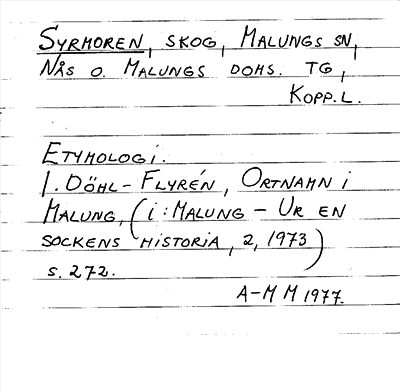 SYRMOREN, SKOG, MALUNGS SN,
NÅS O. MALUNGS DOMS. TG,
KOPP. L.
ETYMOLOGI.
I. DÖHL-FLYRÉN, ORTNAMN I
MALUNG, (I: MALUNG – UR EN
SOCKENS HISTORIA, 2, 1973)
S. 272.
A-M M 1977.